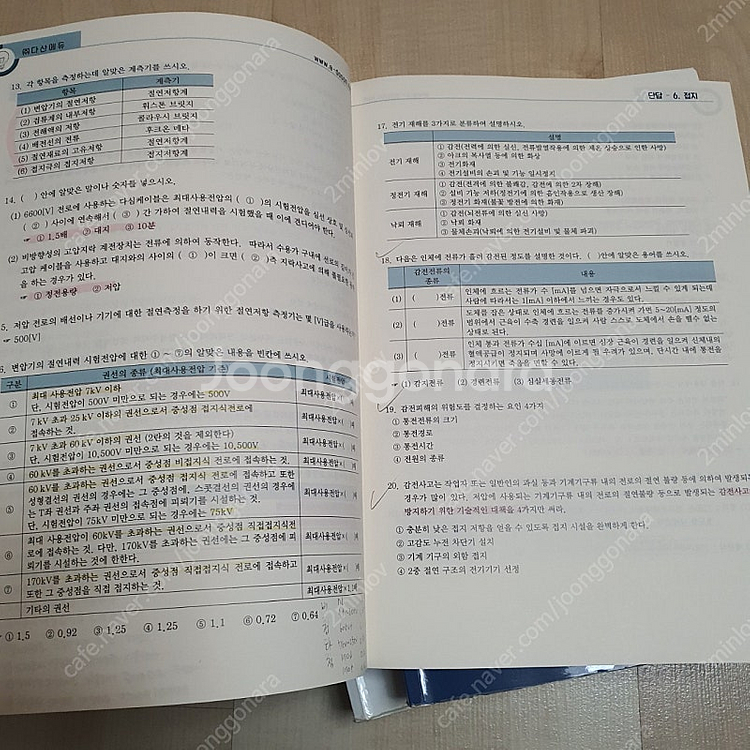 ㈜다산에듀
13. 각 항목을 측정하는데 알맞은 계측기를 쓰시오.
항목 계측기
(1) 변압기의 절연저항 절연저항계
(2) 검류계의 내부저항 휘스톤 브릿지
(3) 전해액의 저항 콜라우시 브릿지
(4) 배전선의 전류 후크온 메타
(5) 절연재료의 고유저항 절연저항계
(6) 접지극의 접지저항 접지저항계
14. ( )안에 알맞은 말이나 숫자를 넣으시오.
(1) 6600[V] 전로에 사용하는 다심케이블은 최대사용전압의 ( ① )의 시험전압을 심선 상호 및 심선과
( ② )사이에 연속해서 ( ③ )간 가하여 절연내력을 시험했을 때 이에 견디어야 한다.
☞ ① 1.5배 ② 대지 ③ 10분
(2) 비방향성의 고압지락 계전장치는 전류에 의하여 동작한다. 따라서 수용가 구내에 선로의
고압 케이블을 사용하고 대지와의 사이의 ( ① )이 크면 ( ② )측 지락사고에 의해
을 하는 경우가 있다.
☞ ① 정전용량 ② 저압
5. 저압 전로의 배선이나 기기에 대한 절연측정을 하기 위한 절연저항 측정기는 몇 [V]급을
☞ 500[V]
변압기의 절연내력 시험전압에 대한 ① ~ ⑦의 알맞은 내용을 빈칸에 쓰시오.
구분 권선의 종류 (최대사용전압 기준)
① 최대 사용전압 7kV 이하
단, 시험전압이 500V 미만으로 되는 경우에는 500V 최대사용전압×(
② 7kV 초과 25kV 이하의 권선으로서 중성점 접지식전로에
접속하는 것. 최대사용전압×(
③ 7kV 초과 60kV 이하의 권선 (2란의 것을 제외한다)
단, 시험전압이 10,500V 미만으로 되는 경우에는 10,500V 최대사용전압×(
④ 60kV를 초과하는 권선으로서 중성점 비접지식 전로에 접속하는 것. 최대사용전압×(
⑤ 60kV를 초과하는 권선으로서 중성점 접지식 전로에 접속하고 또한
성형결선의 권선의 경우에는 그 중성점에, 스콧결선의 권선의 경우에
는 T좌 권선과 주좌 권선의 접속점에 피뢰기를 시설하는 것.
단, 시험전압이 75kV 미만으로 되는 경우에는 75kV 최대사용전압×(
⑥ 최대 사용전압이 60kV를 초과하는 권선으로서 중성점 직접접지식전
로에 접속하는 것. 다만, 170kV를 초과하는 권선에는 그 중성점에 피
뢰기를 시설하는 것에 한한다. 최대사용전압×(
⑦ 170kV를 초과하는 권선으로서 중성점 직접접지식 전로에 접속하고
또한 그 중성점을 직접 접지하는 것. 최대사용전압×(
기타의 권선 최대사용전압×
① 1.5 ② 0.92 ③ 1.25 ④ 1.25 ⑤ 1.1 ⑥ 0.72 ⑦ 0.64
단답 - 6. 접지
17. 전기 재해를 3가지로 분류하여 설명하시오.
설명
전기 재해 ① 감전(전력에 의한 실신, 전류발열작용에 의한 체온 상승으로 인한 사망)
② 아크의 복사열 등에 의한 화상
③ 전기화재
④ 전기설비의 손괴 및 기능 일시정지
정전기 재해 ① 감전(전격에 의한 불쾌감, 감전에 의한 2차 장해)
② 설비 기능 저하(정전기에 의한 흡인작용으로 생산 장해)
③ 정전기 화재(불꽃 방전에 의한 화재)
낙뢰 재해 ① 감전(뇌전류에 의한 실신 사망)
② 낙뢰 화재
③ 물체손괴(낙뢰에 의한 전기설비 및 물체 파괴)
18. 다음은 인체에 전류가 흘러 감전된 정도를 설명한 것이다. ( )안에 알맞은 용어를 쓰시오.
감전전류의 종류 내용
(1) ( )전류 인체에 흐르는 전류가 수 [mA]를 넘으면 자극으로서 느낄 수 있게 되는데
사람에 따라서는 1[mA] 이하에서 느끼는 경우도 있다.
(2) ( )전류 도체를 잡은 상태로 인체에 흐르는 전류를 증가시켜 가면 5~20[mA] 정도의
범위에서 근육이 수축 경련을 일으켜 사람 스스로 도체에서 손을 뗄수 없는
상태로 된다.
(3) ( )전류 인체 통과 전류가 수십 [mA]에 이르면 심장 근육이 경련을 일으켜 신체내의
혈액공급이 정지되며 사망에 이르게 될 우려가 있으며, 단시간 내에 통전을
정지시키면 죽음을 면할 수 있다.
☞ (1) 감지전류 (2) 경련전류 (3) 심실세동전류
19. 감전피해의 위험도를 결정하는 요인 4가지
① 통전전류의 크기
② 통전경로
③ 통전시간
④ 전원의 종류
20. 감전사고는 작업자 또는 일반인의 과실 등과 기계기구류 내의 전로의 절연 불량 등에 의하여 발생되
경우가 많이 있다. 저압에 사용되는 기계기구류 내의 전로의 절연불량 등으로 발생되는 감전사고
방지하기 위한 기술적인 대책을 4가지만 써라.
① 충분히 낮은 접지 저항을 얻을 수 있도록 접지 시설을 완벽하게 한다.
② 고감도 누전 차단기 설치
③ 기계 기구의 외함 접지
④ 2중 절연 구조의 전기기기 선정
joonggonara
cafe.naver.com/joonggonara
2minlov